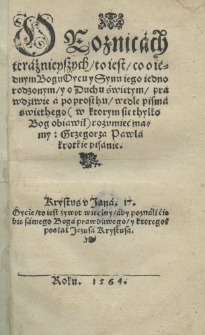 O Roznicách
teráznieyszych / to iest / co o ie-
dnym Bogu Oycu y Synu iego iedno
rodzonym / y o Duchu swiętym / pra
wdziwie á po prosthu / wedle pismá
swiethego (w ktorym sie thylko
Bog obiáwił) rozumieć ma-
my: Grzegorzá Páwłá
krotkie pisánie.
Krystus v Janá. 17.
Oycze / to iest żywot wieczny / áby poználi cie-
bie sámego Bogá prawdziwego / y ktoregoś
posłał Jezusá Krystusá.
Roku. 1564.